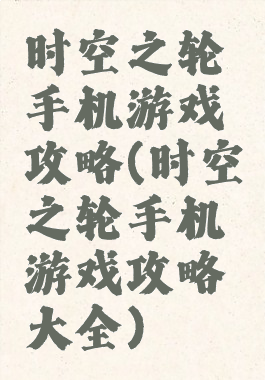 时空之轮
手机游戏
攻略(时空
之轮手机
游戏攻略
大全)